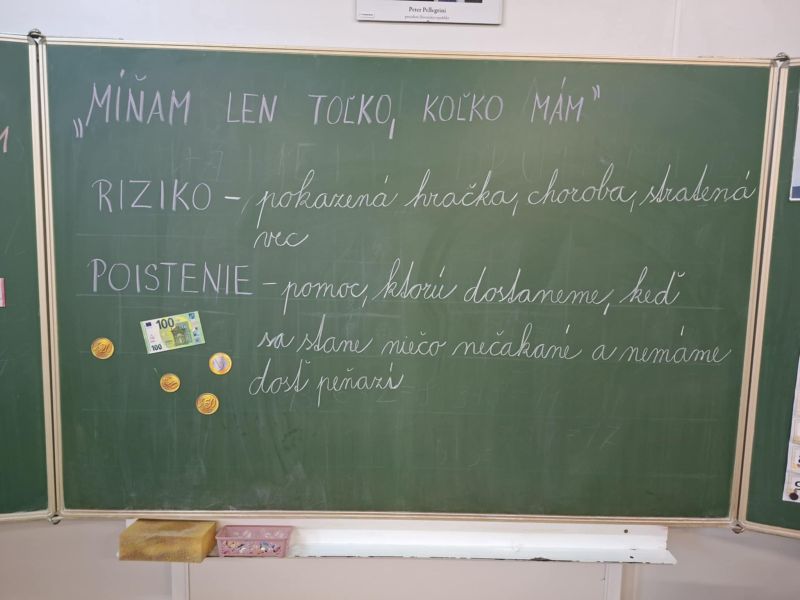 Peter Pellegrini
„MÍŇAM LEN TOĽKO, KOĽKO MÁM"
RIZIKO – pokazená hračka, choroba, stratená
vec
POISTENIE – pomoc, ktorú dostaneme, keď
sa stane niečo nečakané a nemáme
dosť peňazí
100
100